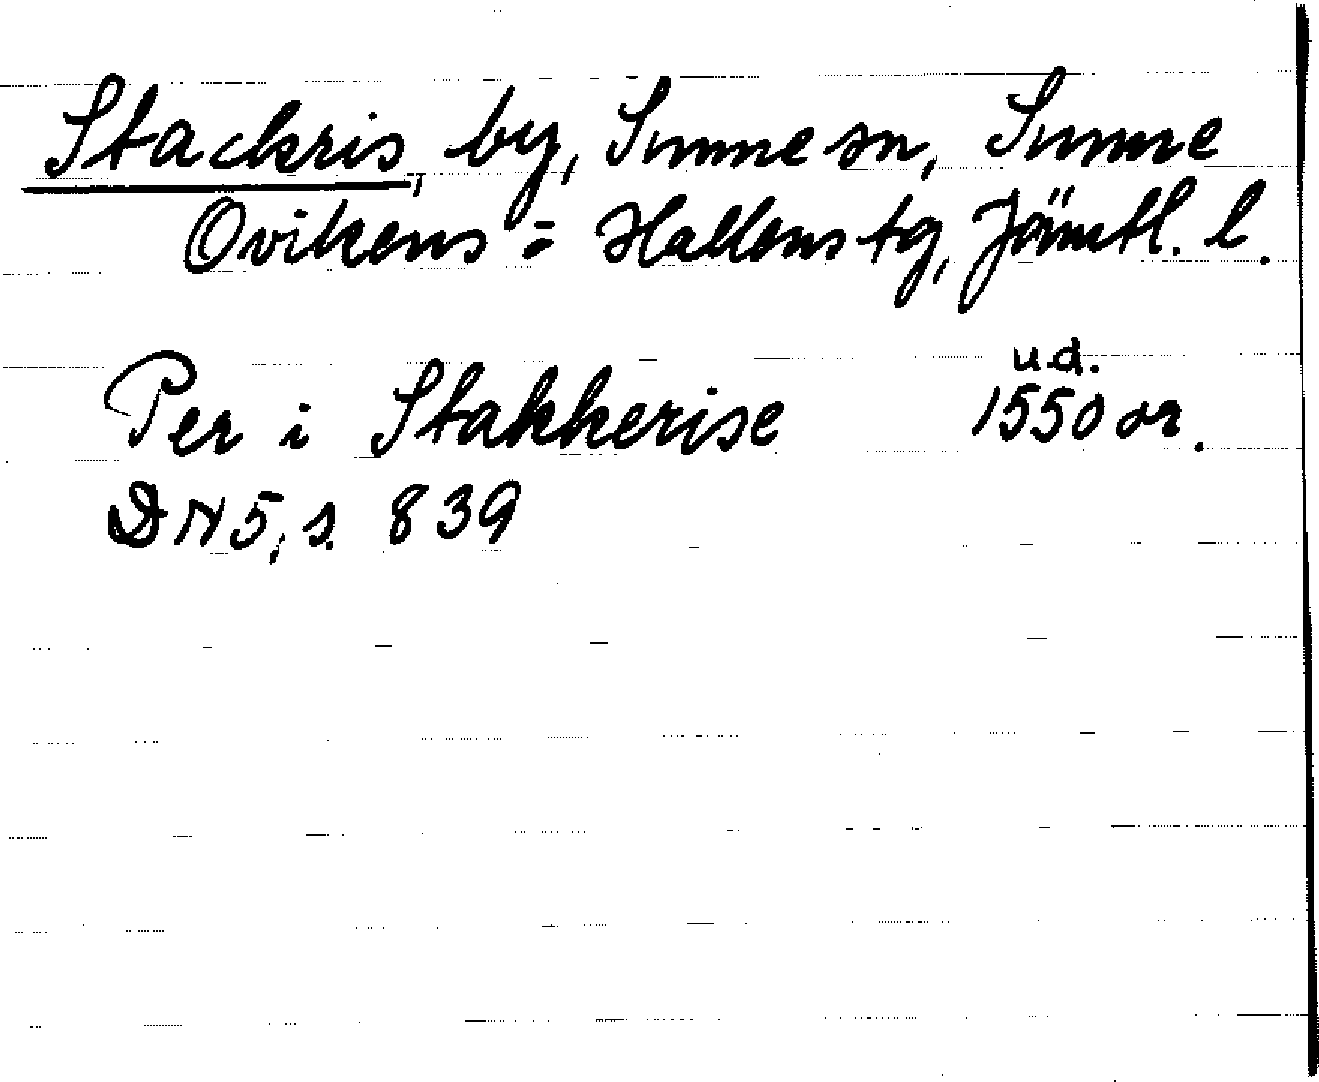 Stackris, by, Sunne sn, Sunne
Ovikens = Hallens tg, Jämtl. l.
u.d.
Per i Stakkerise 1550 or.
DN 5, s. 839